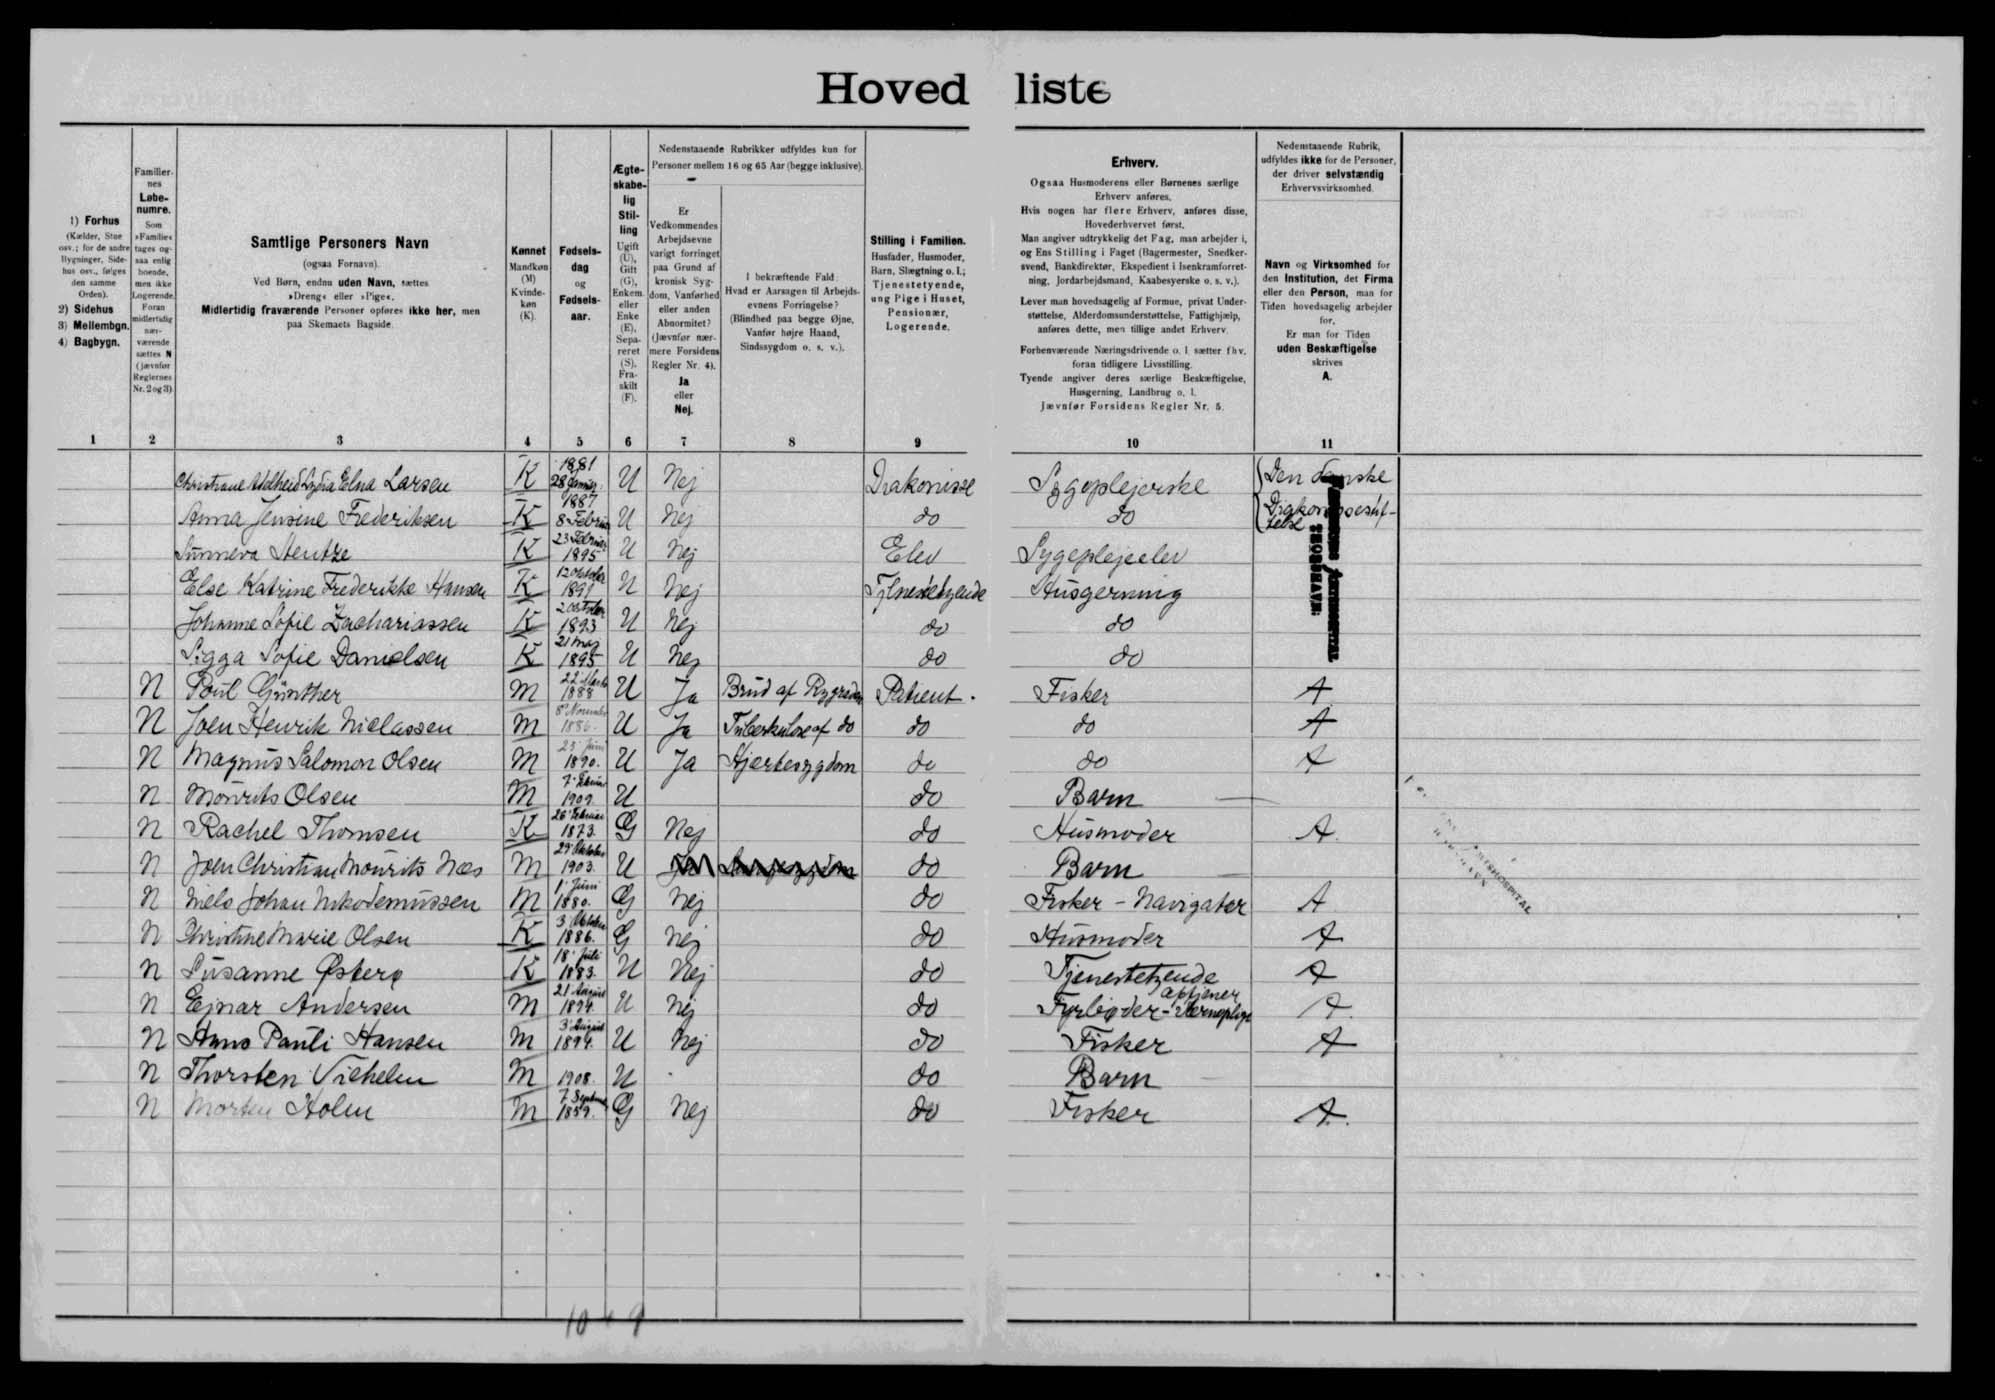 Hoved liste
1) Forhus
(Kælder, Stue
osv.; for de andre
Bygninger, Side-
hus osv., følges
den samme
Orden).
2) Sidehus
3) Mellembgn.
4) Bagbygn.
Familier-
nes
Løbe-
numre.
Som
»Familie«
tages og-
saa enlig
boende,
men ikke
Logerende.
Foran
midlertidig
nær-
værende
sættes N
(jævnfør
Reglernes
Nr. 2 og 3)
Samtlige Personers Navn
(ogsaa Fornavn).
Ved Børn, endnu uden Navn, sættes
»Dreng« eller »Pige«.
Midlertidig fraværende Personer opføres ikke her, men
paa Skemaets Bagside.
Kønnet
Mandkøn
(M)
Kvinde-
køn
(K).
Fødsels-
dag
og
Fødsels-
aar.
Ægte-
skabe-
lig
Stil-
ling
Ugift
(U),
Gift
(G),
Enkem.
eller
Enke
(E),
Sepa-
reret
(S),
Fra-
skilt
(F).
Nedenstaaende Rubrikker udfyldes kun for
Personer mellem 16 og 65 Aar (begge inklusive).
Er
Vedkommendes
Arbejdsevne
varigt forringet
paa Grund af
kronisk Syg-
dom, Vanførhed
eller anden
Abnormitet?
(Jævnfør nær-
mere Forsidens
Regler Nr. 4).
Ja
eller
Nej.
I bekræftende Fald:
Hvad er Aarsagen til Arbejds-
evnens Forringelse?
(Blindhed paa begge Øjne,
Vanfør højre Haand,
Sindssygdom o. s. v.).
Stilling i Familien.
Husfader, Husmoder,
Barn, Slægtning o. l.;
Tjenestetyende,
ung Pige i Huset,
Pensionær,
Logerende.
Erhverv.
Ogsaa Husmoderens eller Børnenes særlige
Erhverv anføres.
Hvis nogen har flere Erhverv, anføres disse,
Hovederhvervet først.
Man angiver udtrykkelig det Fag, man arbejder i,
og Ens Stilling i Faget (Bagermester, Snedker-
svend, Bankdirektør, Ekspedient i Isenkramforret-
ning, Jordarbejdsmand, Kaabesyerske o. s. v.).
Lever man hovedsagelig af Formue, privat Under-
støttelse, Alderdomsunderstøttelse, Fattighjælp,
anføres dette, men tillige andet Erhverv.
Forhenværende Næringsdrivende o. l. sætter fhv.
foran tidligere Livsstilling.
Tyende angiver deres særlige Beskæftigelse,
Husgerning, Landbrug o. l.
Jævnfør Forsidens Regler Nr. 5.
Nedenstaaende Rubrik,
udfyldes ikke for de Personer,
der driver selvstændig
Erhvervsvirksomhed.
Navn og Virksomhed for
den Institution, det Firma
eller den Person, man for
Tiden hovedsagelig arbejder
for.
Er man for Tiden
uden Beskæftigelse
skrives
A.
1 2 3 4 5 6 7 8 9 10 11
Christiane Adelheid Lydia Elna Larsen K 1881 28 Januar U Nej Diakonisse Sygeplejerske Den danske
Anna Jensine Frederiksen K 1887 8 Februar U Nej do do Diakonissestif-
telse
Sunneva Stentze K 23 Februar 1895 U Nej Elev Sygeplejeelev
Else Katrine Frederikke Hansen K 12 Oktober 1891 U Nej Tjenestetyende Husgerning
Johanne Sofie Zachariassen K 2 Oktober 1893 U Nej do do
Sigga Sofie Danielsen K 21 Maj 1895 U Nej do do
THORSHAVN:
N Poul Günther M 22 Marts 1888 U Ja Brud af Rygraden Patient. Fisker A
N Joen Henrik Niclassen M 8 November 1886. U Ja Tuberkulose af do do do A
N Magnus Salomon Olsen M 23 Juni 1890. U Ja Hjertesygdom do do A
N Mourits Olsen M 7 Februar 1909. U do Barn —
N Rachel Thomsen K 26 Februar 1873. G Nej do Husmoder A.
N Joen Christian Mourits Næs M 29 Oktober 1903. U do Barn —
N Niels Johan Nikodemussen M 1 Juni 1880. G Nej do Fisker - Navigatør A
N Christine Marie Olsen K 3 Oktober 1886. G Nej do Husmoder A
N Susanne Østerø K 18 Juli 1883. U Nej do Tjenestetyende A
N Ejnar Andersen M 21 August 1894. U Nej do Fyrbøder - aftjener Værnepligt A.
N Hans Pauli Hansen M 3 August 1894. U Nej do Fisker A
N Thorsten Vilhelm M 1908. U do Barn —
N Morten Holm M 7 Septemb 1859. G Nej do Fisker A.
10 + 9